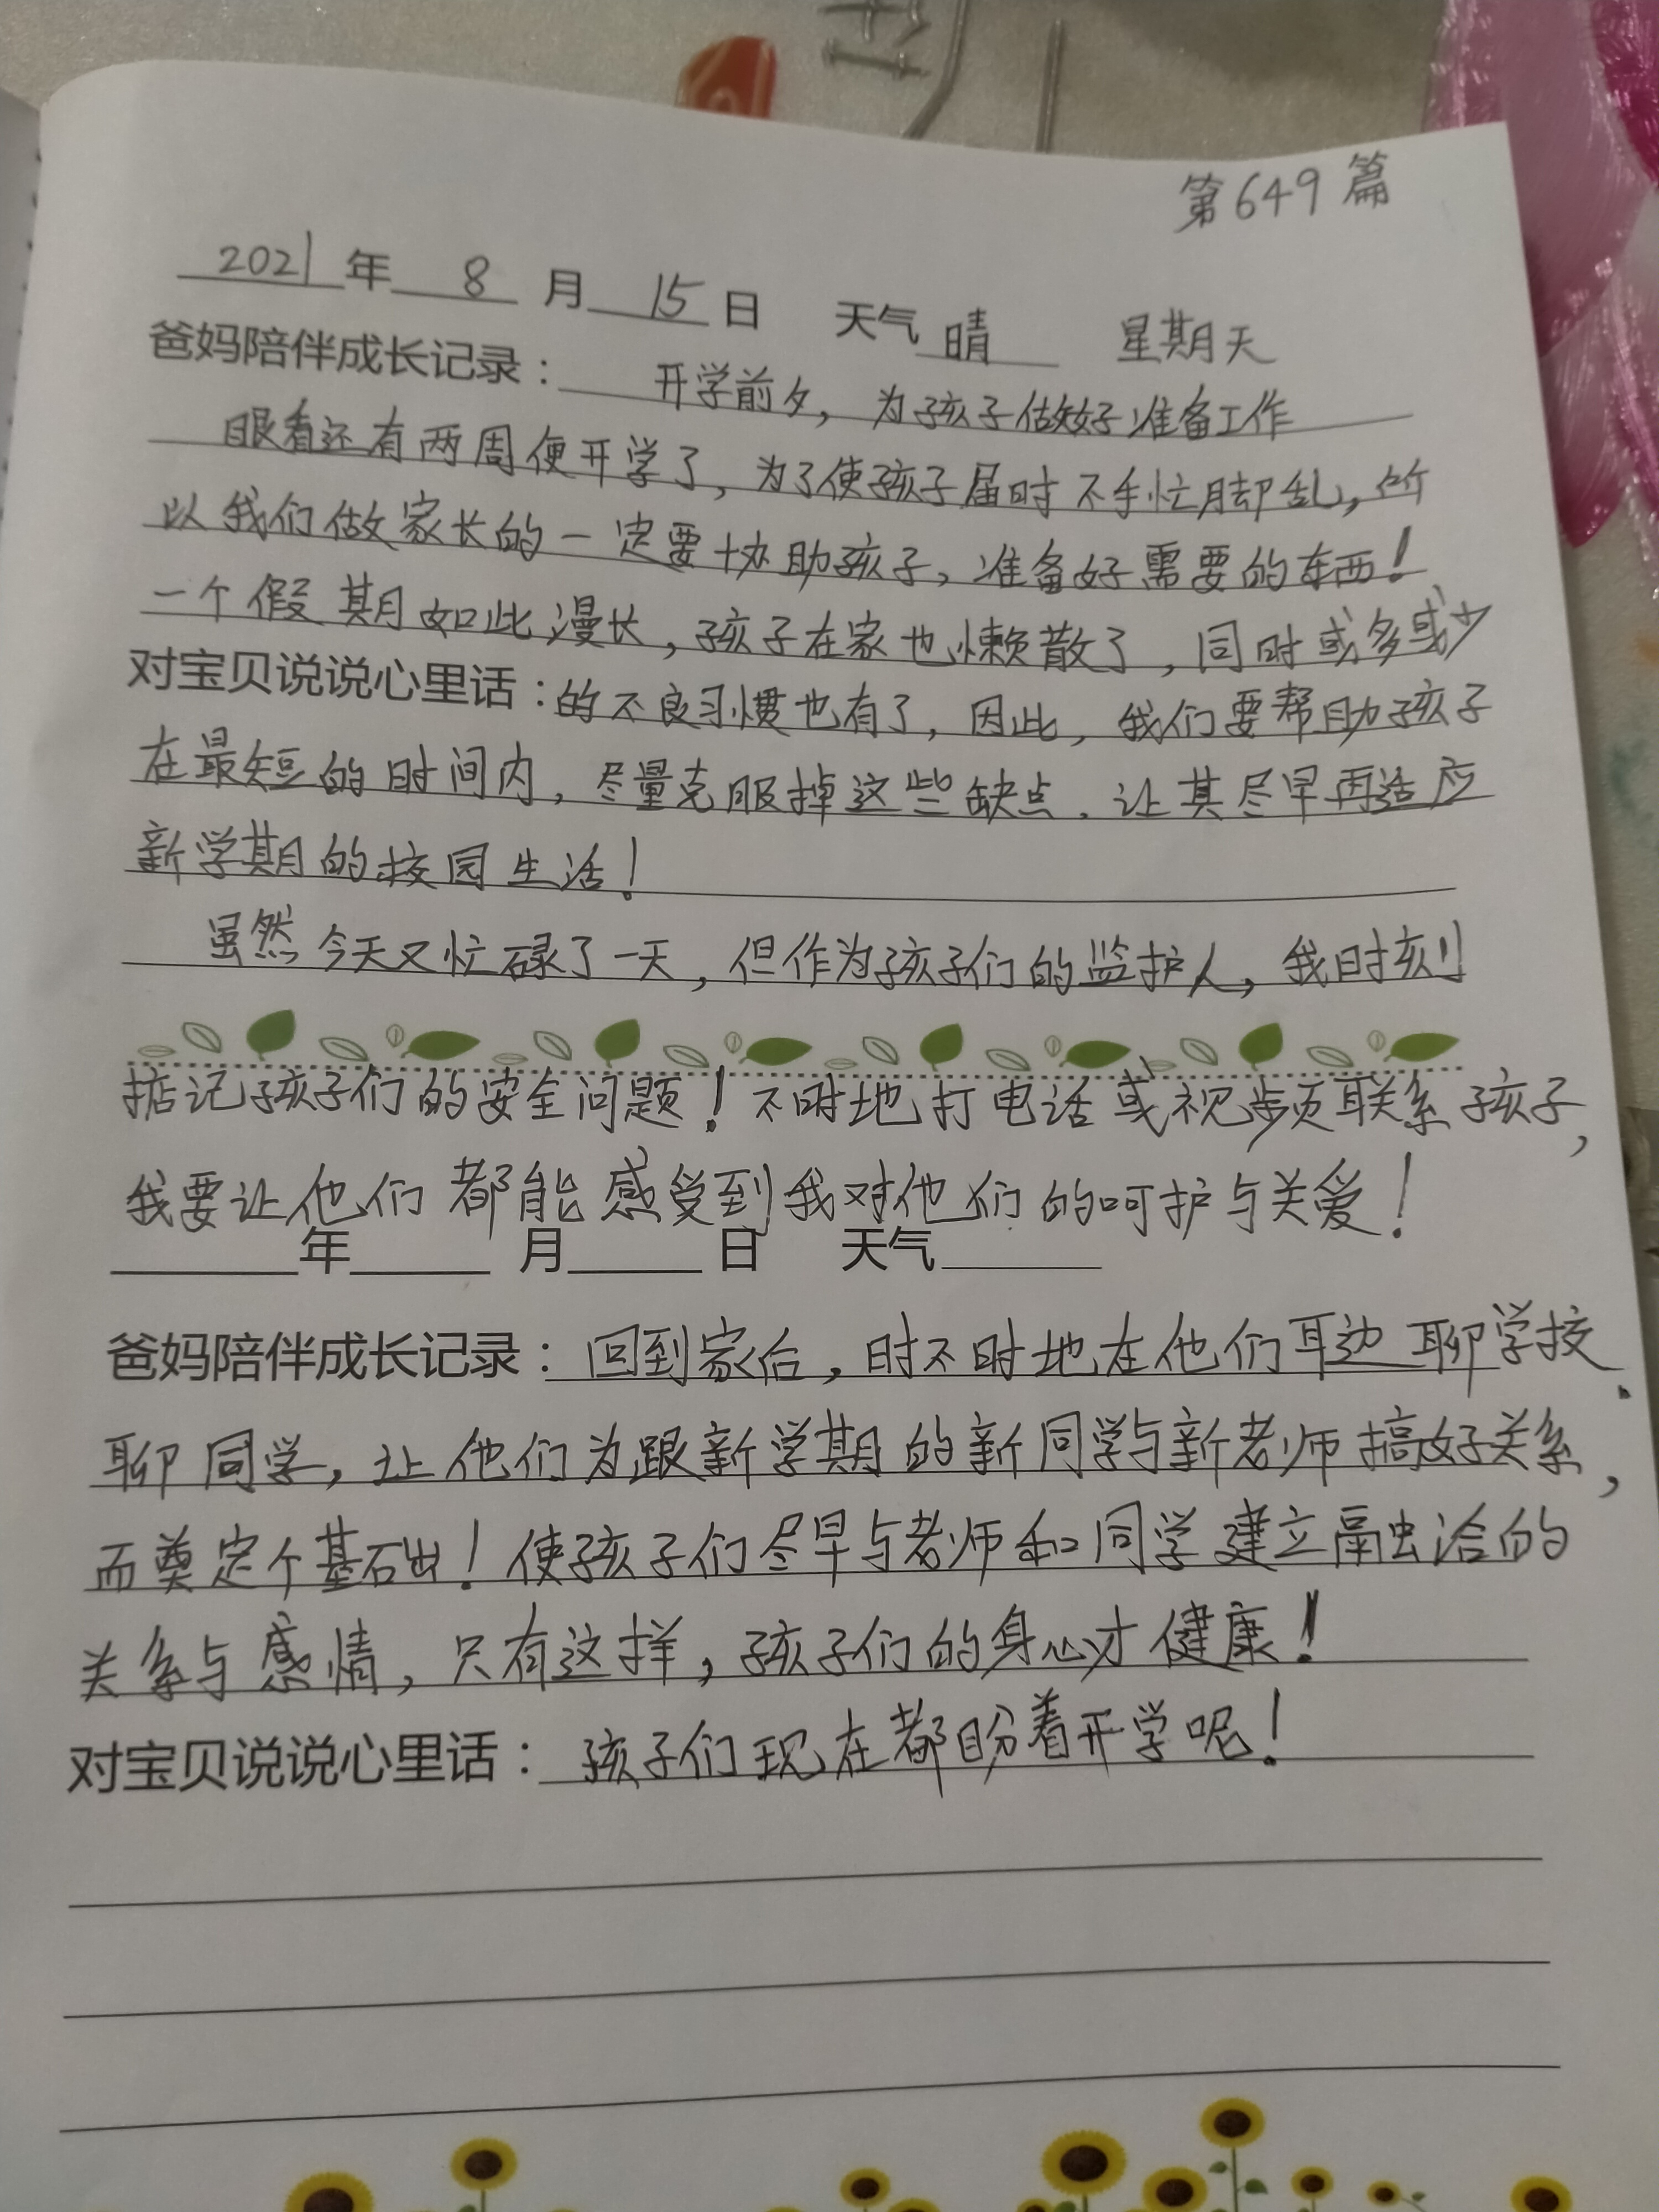 第649篇
2021年 8 月 15 日 天气 晴 星期天
爸妈陪伴成长记录： 开学前夕，为孩子做好准备工作
眼看还有两周便开学了，为了使孩子届时不手忙脚乱，所
以我们做家长的一定要协助孩子，准备好需要的东西！
一个假期如此漫长，孩子在家也懒散了，同时或多或少
对宝贝说说心里话：的不良习惯也有了，因此，我们要帮助孩子
在最短的时间内，尽量克服掉这些缺点，让其尽早再适应
新学期的校园生活！
虽然今天又忙碌了一天，但作为孩子们的监护人，我时刻
掂记孩子们的安全问题！不时地打电话或视频联系孩子，
我要让他们都能感受到我对他们的呵护与关爱！
年 月 日 天气
爸妈陪伴成长记录：回到家后，时不时地在他们耳边聊学校、
聊同学，让他们为跟新学期的新同学与新老师搞好关系，
而奠定个基础！使孩子们尽早与老师和同学建立融洽的
关系与感情，只有这样，孩子们的身心才健康！
对宝贝说说心里话：孩子们现在都盼着开学呢！